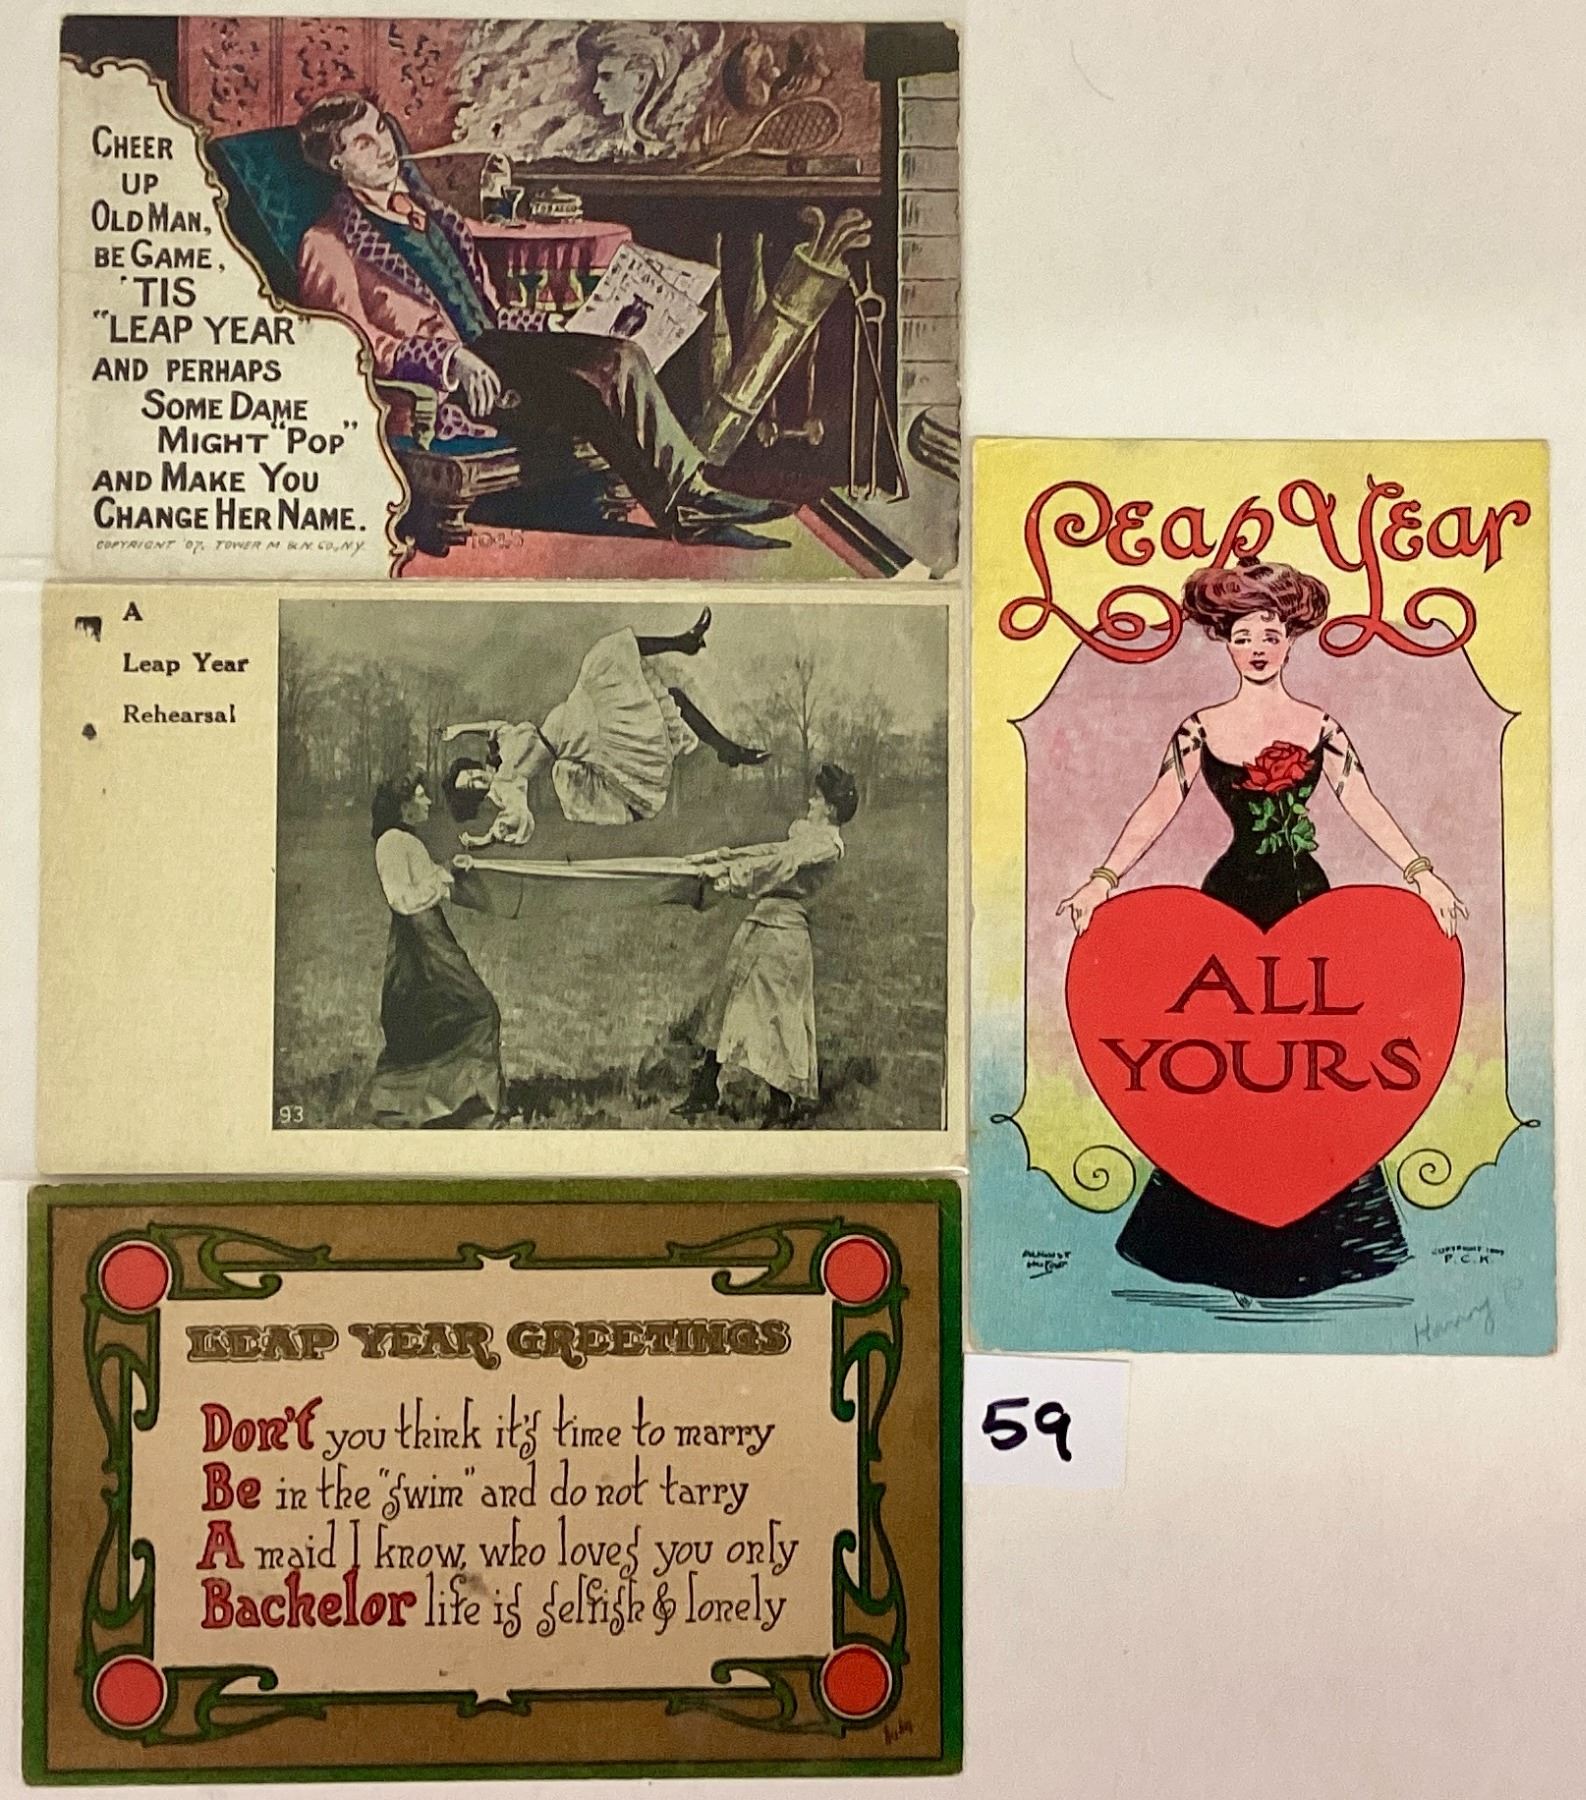 CHEER
UP
OLD MAN,
BE GAME,
'TIS
"LEAP YEAR"
AND PERHAPS
SOME DAME
MIGHT "POP"
AND MAKE YOU
CHANGE HER NAME.
COPYRIGHT '07. TOWER M & N. CO., N.Y.
TOBACCO
A
Leap Year
Rehearsal
93
LEAP YEAR GREETINGS
Don't you think it's time to marry
Be in the "swim" and do not tarry
A maid I know, who loves you only
Bachelor life is selfish & lonely
Leap Year
ALL
YOURS
P.C.K.
Harry P
59